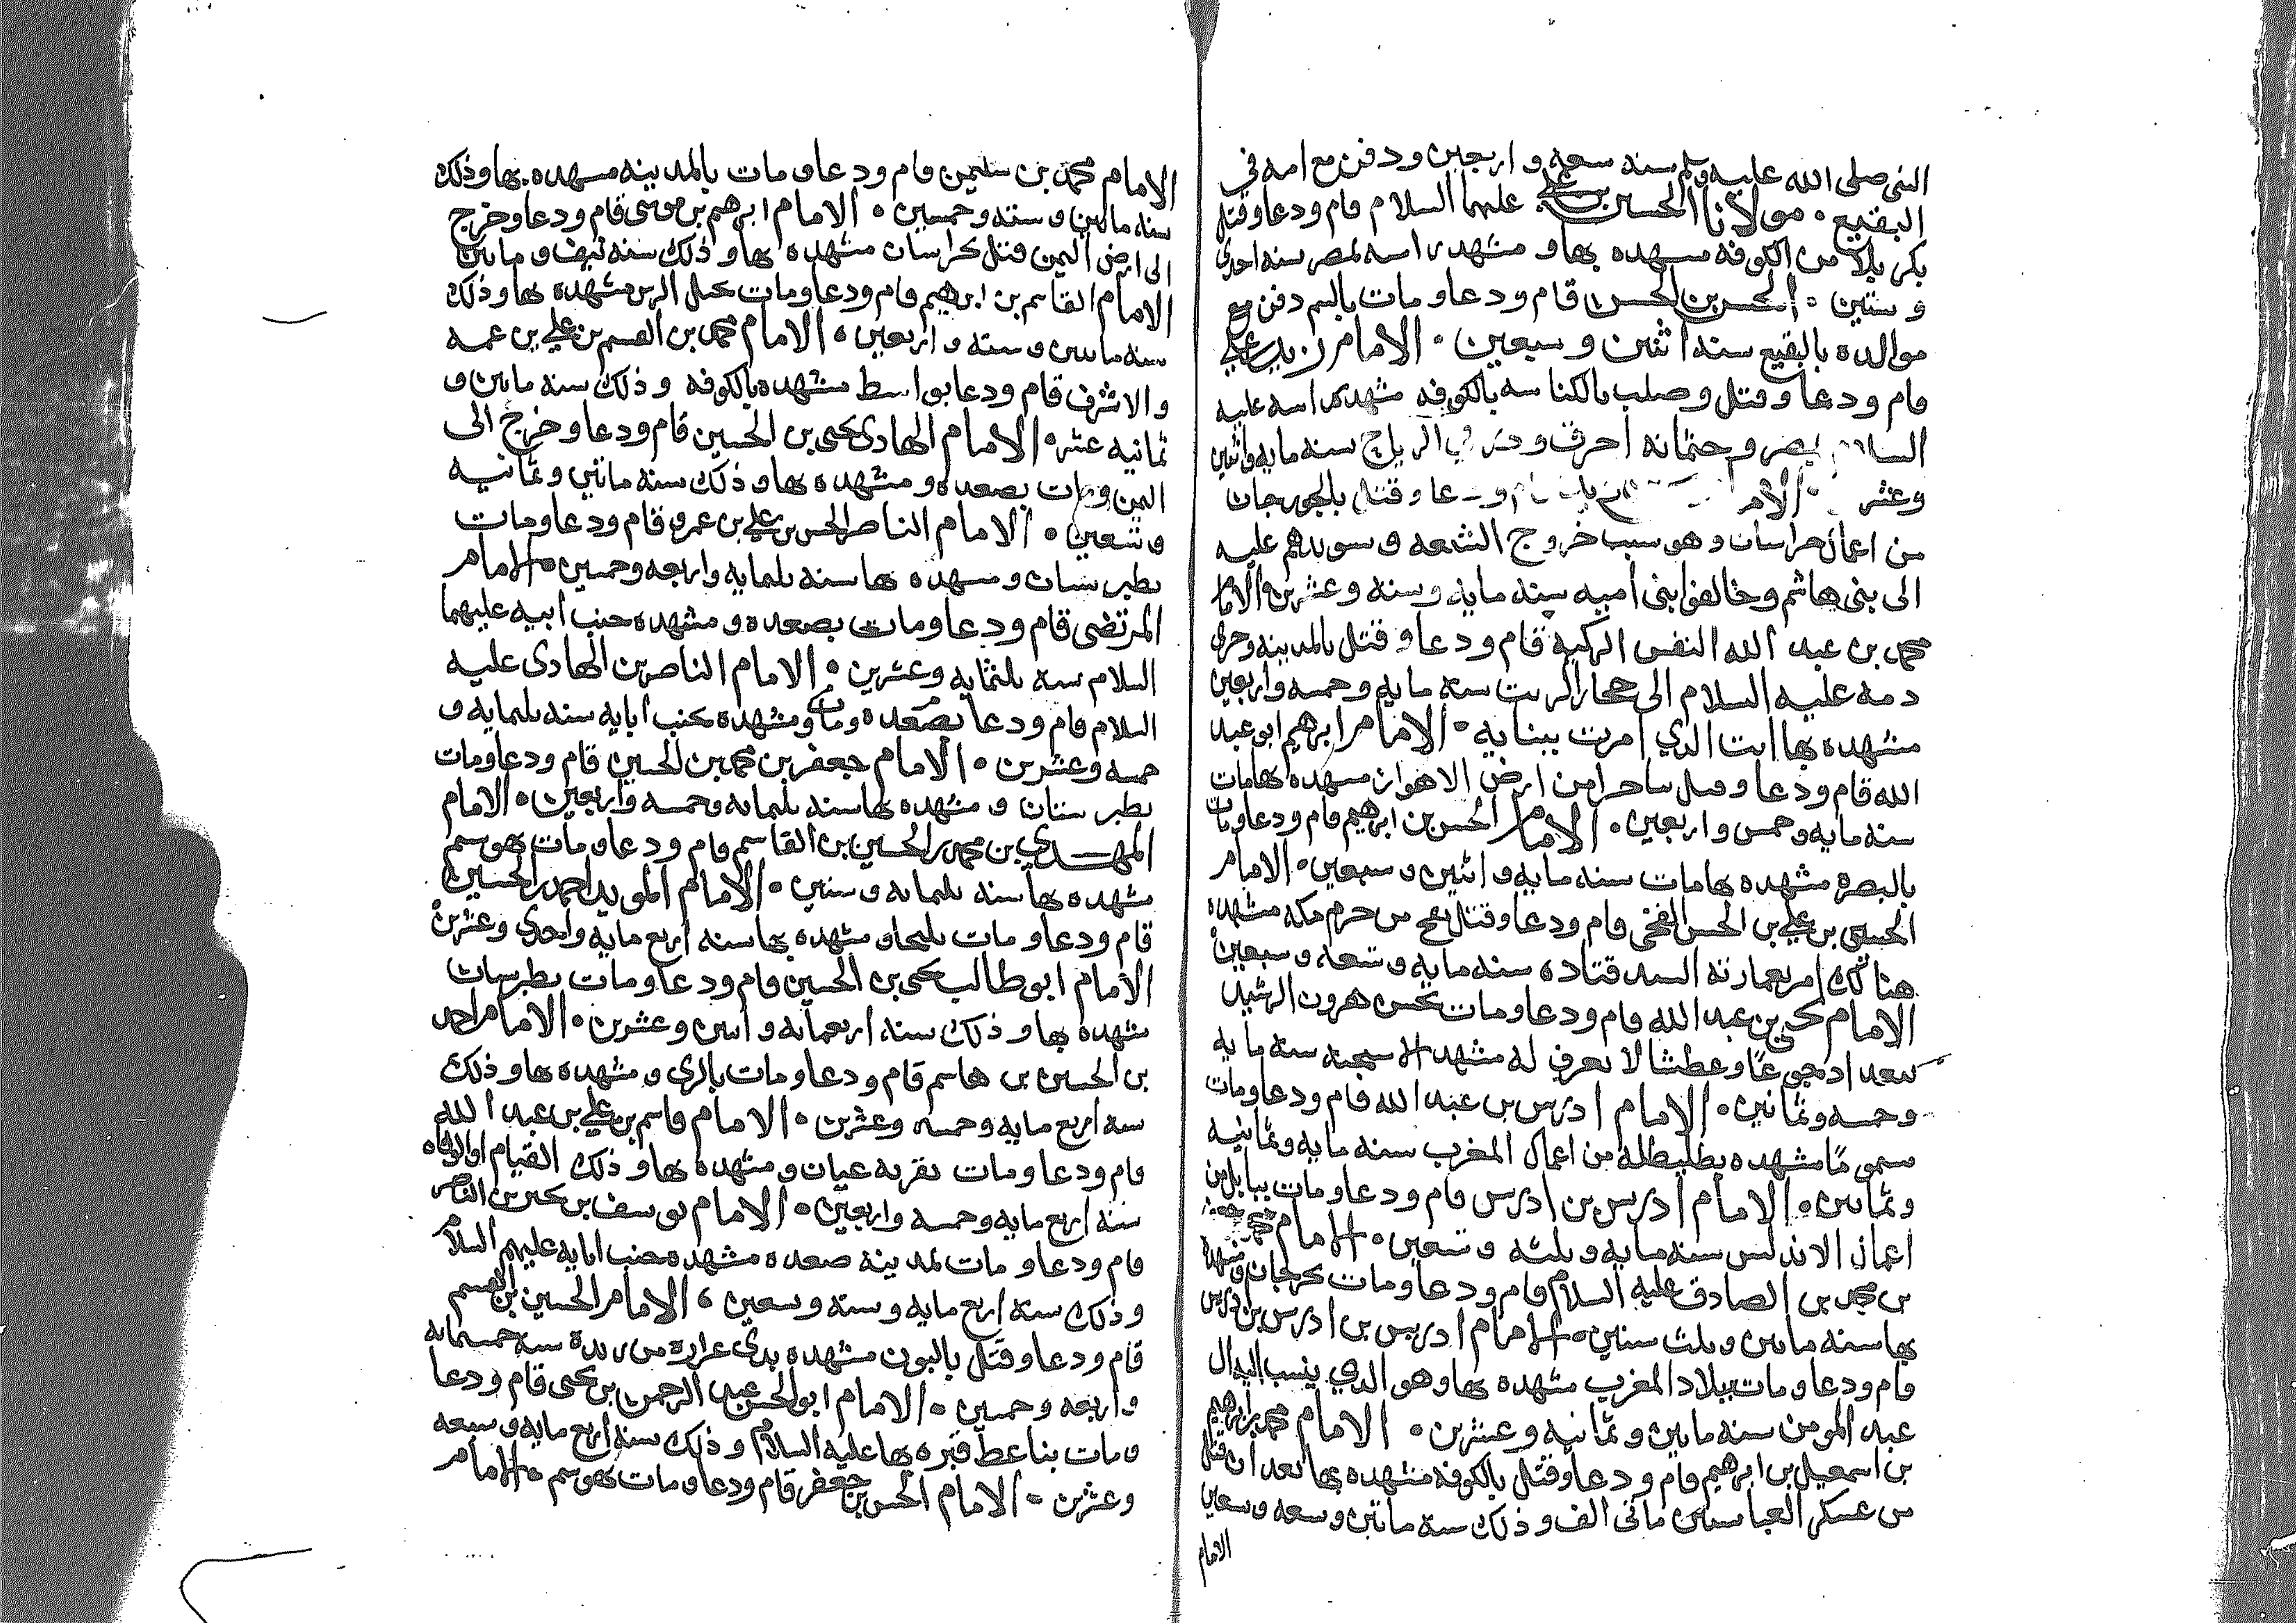 النبي صلى الله عليه وسلم سنه سعه واربعين ودفن مع امه في
البقيع • مولانا الحسين بن علي عليهما السلام قام ودعا وقتل
بكربلا من الكوفه مسهده بها و مشهد راسه بمصر سنه احدى
وستين • الحسن بن الحسن قام ودعا ومات بالسم دفن مع
موالده بالبقيع سنه اثنين وسبعين • الامام زيد بن علي
قام ودعا وقتل وصلب بالكناسه بالكوفه مشهد راسه عليه
السلام بمصر وجثمانه احرق وذري في الرياح سنه مايه واثنين
وعشر • الامام ودعا وقتل بالجورجان
من اعمال خراسان وهو سبب خروج الشيعه وسويدهم عليه
الى بني هاشم وخالفوا بني اميه سنه مايه وسته وعشرين والامام
محمد بن عبد الله النفس الزكيه قام ودعا وقتل بالمدينه وجرى
دمه عليه السلام الى حجار الزيت سنه مايه وخمسه واربعين
مشهده بها الذي امرت ببنايه • الامام ابرهيم ابو عبد
الله قام ودعا وقتل من ارض الاهواز مسهده بها مات
سنه مايه وخمس واربعين • الامام الحسن بن ابرهيم قام ودعا ومات
بالبصره مشهده بها مات سنه مايه واثنين وسبعين • الامام
الحسين بن علي بن الحسن الفخي قام ودعا وقتل بفخ من حرم مكه مشهده
هنالك امر بعمارته السيد قتاده سنه مايه وتسعه وسبعين
الامام يحيى بن عبد الله قام ودعا ومات بحبس هرون الرشيد
ببغداد جوعا وعطشا لا يعرف له مشهد سنه مايه
وخمسه وثمانين • الامام ادريس بن عبد الله قام ودعا ومات
مسموما مشهده بطليطله من اعمال المغرب سنه مايه وثمانيه
وثمانين • الامام ادريس بن ادريس قام ودعا ومات ببابل من
اعمال الاندلس سنه مايه وثلثه وتسعين • الامام محمد
بن محمد بن الصادق عليه السلام قام ودعا ومات بجرجان مشهده
بها سنه ماتين وثلث سنين • الامام ادريس بن ادريس بن ادريس
قام ودعا ومات ببلاد المغرب مشهده بها وهو الذي ينسب اليه ال
عبد المومن سنه ماتين وثمانيه وعشرين • الامام محمد بن ابرهيم
بن اسمعيل بن ابرهيم قام ودعا وقتل بالكوفه مشهده بها بعد ان قتل
من عسكر العباسيين مائتي الف وذلك سنه ماتين وسعه وسعين
الامام
الامام محمد بن سليمن قام ودعا ومات بالمدينه مسهده بها وذلك
سنه ماتين وسته وخمسين • الامام ابرهيم بن موسى قام ودعا وخرج
الى ارض اليمن فقتل بخراسان مشهده بها وذلك سنه نيف وماتين
الامام القاسم بن ابرهيم قام ودعا ومات بجبل الرس مشهده بها وذلك
سنه ماتين وسته واربعين • الامام محمد بن القسم بن علي بن عمه
والاشرف قام ودعا بواسط مشهده بالكوفه وذلك سنه ماتين و
ثمانيه عشر • الامام الهادي يحيى بن الحسين قام ودعا وخرج الى
اليمن ومات بصعده ومشهده بها وذلك سنه ماتين وثمانيه
وتسعين • الامام الناصر الحسن بن علي بن عمرو قام ودعا ومات
بطبرستان ومسهده بها سنه ثلثمايه واربعه وخمسين • الامام
المرتضى قام ودعا ومات بصعده ومشهده جنب ابيه عليهما
السلام سنه ثلثمايه وعشرين • الامام الناصر بن الهادي عليه
السلام قام ودعا بصعده ومات ومشهده بجنب ابايه سنه ثلثمايه و
خمسه وعشرين • الامام جعفر بن محمد بن الحسين قام ودعا ومات
بطبرستان ومشهده بها سنه ثلثمايه وخمسه واربعين • الامام
المهدي بن محمد بن الحسين بن القاسم قام ودعا ومات بهوسم
مشهده بها سنه ثلثمايه وستين • الامام المويد احمد بن الحسين
قام ودعا ومات مشهده بها سنه اربع مايه واحدى وعشرين
الامام ابو طالب يحيى بن الحسين قام ودعا ومات بطبرستان
مشهده بها وذلك سنه اربعمايه واثنين وعشرين • الامام احمد
بن الحسين بن هاسم قام ودعا ومات بالري ومشهده بها وذلك
سنه اربع مايه وخمسه وعشرين • الامام قاسم بن علي بن عبد الله
قام ودعا ومات بقريه عيان ومشهده بها وذلك القيام او الوفاه
سنه اربع مايه وخمسه واربعين • الامام يوسف بن يحيى بن الناصر
قام ودعا ومات بمدينه صعده مشهده جنب ابايه عليهم السلام
وذلك سنه اربع مايه وسته وسعين • الامام الحسين بن القسم
قام ودعا وقتل بالبون مشهده بذي عرار من ريده سنه خمسمايه
واربعه وخمسين • الامام ابو الحسن عبد الرحمن بن يحيى قام ودعا
ومات بناعط قبره بها عليه السلام وذلك سنه اربع مايه وسبعه
وعشرين • الامام الحسن بن جعفر قام ودعا ومات بهوسم • الامام